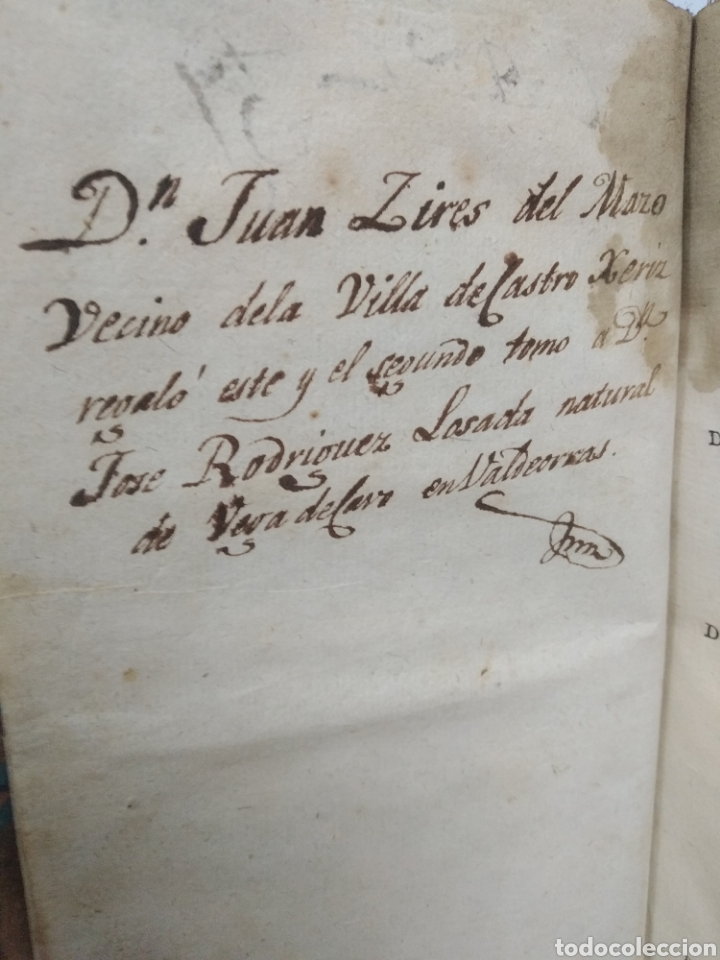 D.n Juan Zires del Mazo
Vecino dela Villa de Castro Xeriz
regaló este y el segundo tomo a D.n
Jose Rodriguez Losada natural
de Vega de Cavo en Valdeorras.
D
D
todocoleccion